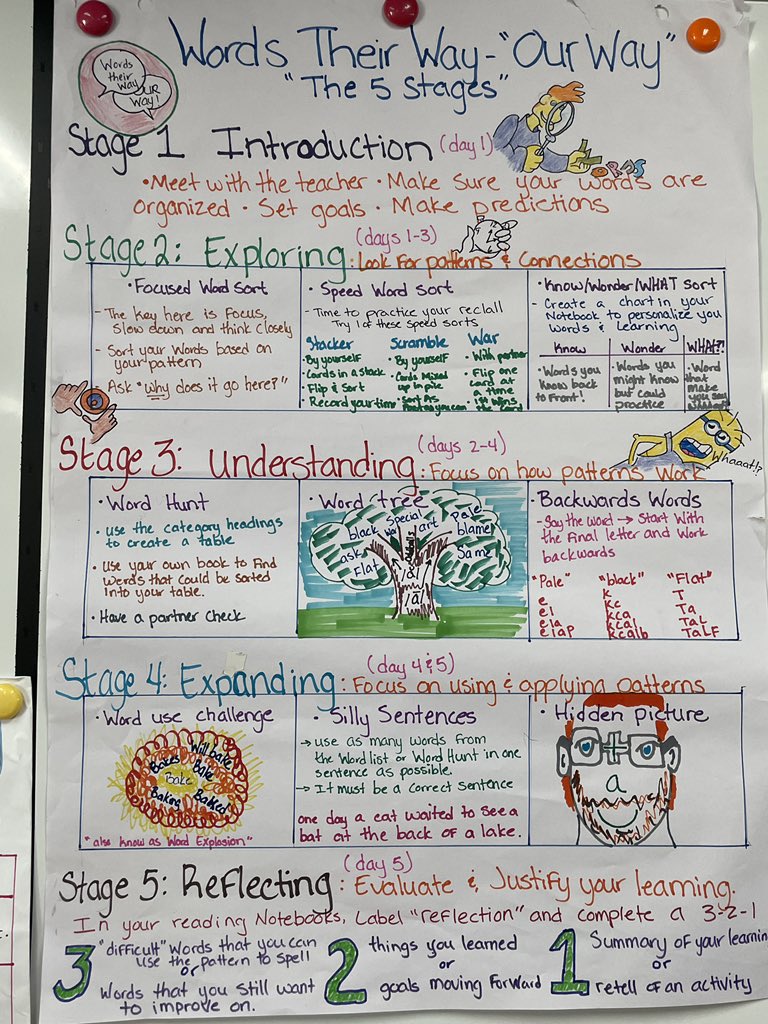 Words Their Way - "Our Way"
"The 5 Stages"
Words their way
OUR WAY!
Stage 1 Introduction (day 1)
WORDS
• Meet with the teacher • Make sure your words are
organized • Set goals • Make predictions
Stage 2: Exploring (days 1-3) : Look for patterns & Connections
• Focused Word Sort
- The key here is Focus, slow down and think closely
- Sort your Words based on your pattern
- Ask "Why does it go here?"
• Speed Word Sort
- Time to practice your recall
Try 1 of these Speed sorts
Stacker
• By yourself
• Cards in a stack
• Flip & Sort
• Record your time
Scramble
• By yourself
• Cards Mixed up in pile
• Sort As
War
• With partner
• Flip one Card at a time
• 1st wins the Card
• Know/Wonder/WHAT Sort
- Create a chart in your
Notebook to personalize you
words & learning
Know
Wonder
WHAT?!
• Words you know back to Front!
• Words you might know but could practice
• Word that make you say
Whaaat!?
Stage 3: Understanding (days 2-4) : Focus on how patterns Work
• Word Hunt
• use the category headings
to create a table
• Use your own book to Find
Words that could be sorted
into your table.
• Have a partner Check
• Word tree
black
Special
art
Pale
blame
ask
Flat
Same
/ă/
/ā/
• Backwards Words
- Say the word → Start With
the Final letter and Work
backwards
"Pale" "black" "Flat"
e K T
el Kc Ta
ela kca TaL
elaP kcal TaLF
kcalb
Stage 4: Expanding (day 4 & 5) : Focus on using & applying patterns
• Word use challenge
Bakes
Will bake
Bake
Bake
Baking
Baked
"also Know as Word Explosion"
• Silly Sentences
→ use as many words from
the Word list or Word Hunt in one
sentence as possible.
→ It must be a correct sentence
one day a cat waited to see a
bat at the back of a lake.
• Hidden picture
a
Stage 5: Reflecting (day 5) : Evaluate & Justify your learning.
In your reading Notebooks, Label "reflection" and complete a 3-2-1
3 "difficult" Words that you can
use the pattern to spell
or
Words that you still want
to improve on.
2 things you learned
or
goals moving Forward
1 Summary of your learnin
or
retell of an activity